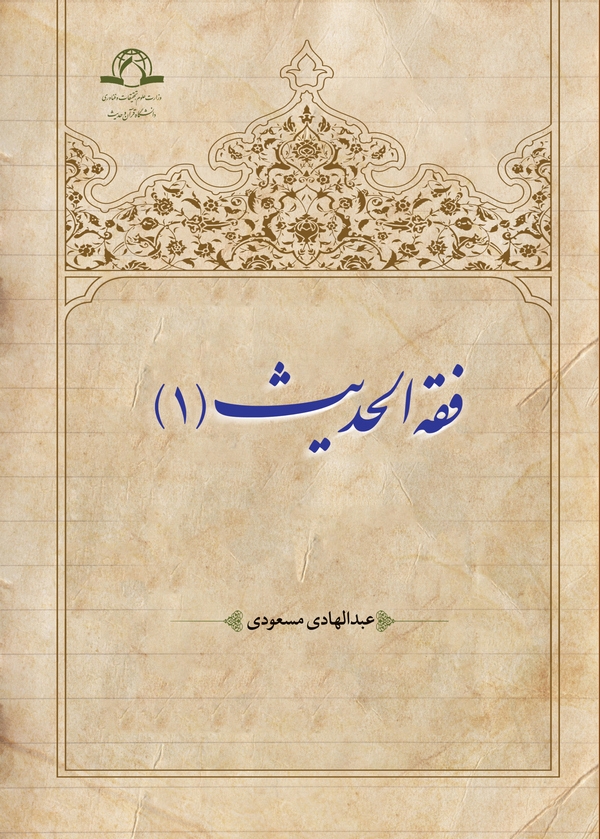 وزارت علوم، تحقیقات و فناوری
دانشگاه قرآن و حدیث
فقه الحدیث (۱)
عبدالهادی مسعودی